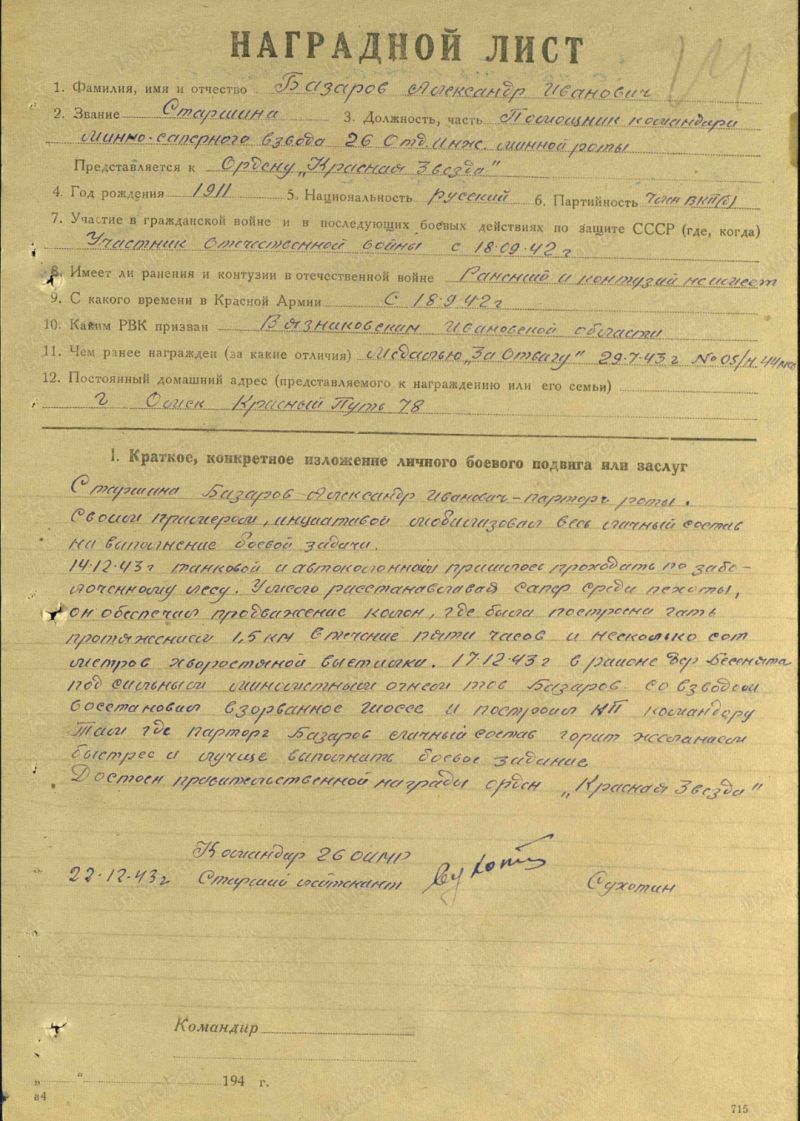 НАГРАДНОЙ ЛИСТ
1. Фамилия, имя и отчество Базаров Александр Иванович
2. Звание Старшина 3. Должность, часть Помощник командира
минно-саперного взвода 26 Отд. инж. минной роты
Представляется к Ордену „Красная Звезда"
4. Год рождения 1911 5. Национальность русский 6. Партийность Член ВКП(б)
7. Участие в гражданской войне и в последующих боевых действиях по защите СССР (где, когда)
Участник отечественной войны с 18.09.42 г
8. Имеет ли ранения и контузии в отечественной войне Ранений и контузий не имеет
9. С какого времени в Красной Армии С 18.9.42 г
10. Каким РВК призван Вязниковским Ивановской области
11. Чем ранее награжден (за какие отличия) Медалью „За Отвагу" 29.7.43 г № 05/н
12. Постоянный домашний адрес (представляемого к награждению или его семьи)
г Омск Красный Путь 78
I. Краткое, конкретное изложение личного боевого подвига или заслуг
Старшина Базаров Александр Иванович - парторг роты.
Своим примером, инциативой мобилизовал весь личный состав
на выполнение боевой задачи.
14.12.43 г танковой и автоколонной пришлось проходить по забо-
лоченному лесу. Умело расстанавливая сапер среди пехоты,
он обеспечил продвижение колон, где была построена гать
протяжением 1,5 км втечание пяти часов и несколько сот
метров хворостяной выстилки. 17.12.43 г в районе дер
под сильным минометным огнем тов Базаров со взводом
восстановил взорванное шоссе и построил КП командиру
Там где парторг Базаров личный состав горит желанием
быстрее и лучше выполнить боевое задание
Достоен правительственной награды орден „Красная Звезда"
Командир 26 ОИМР
22.12.43 г Старший лейтенант Сухотин
Командир
„ “ 194 г.
а4
715
ЦАМО.РФ